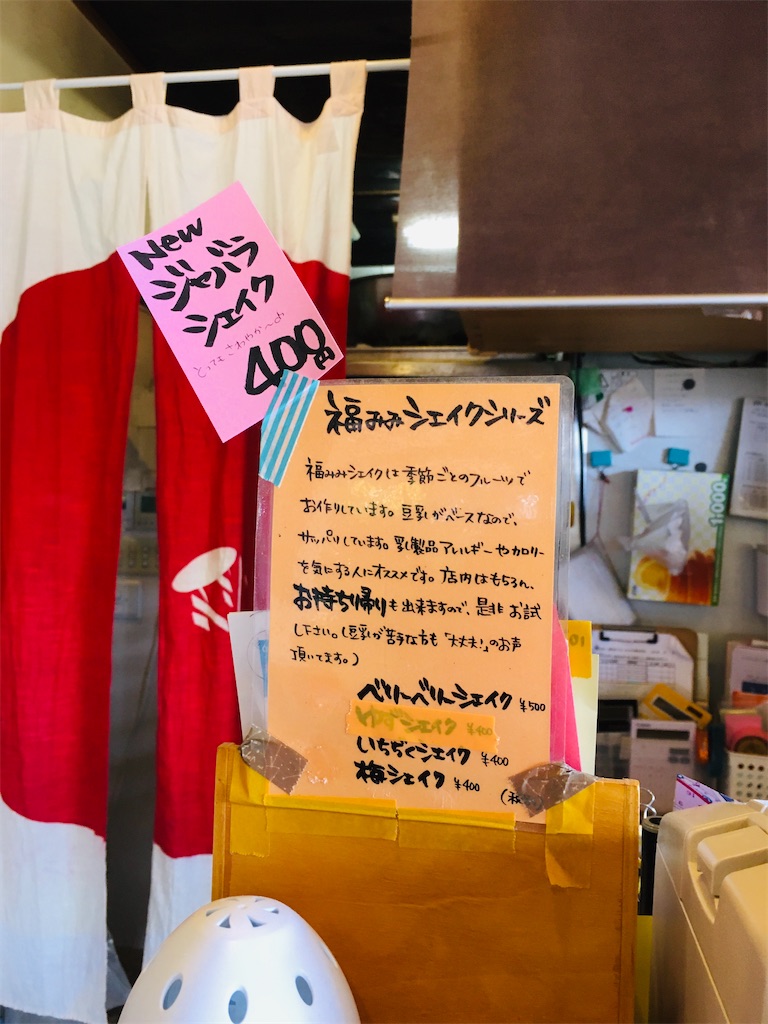 New
ジャバラ
シェイク
とってもさわやか〜め
400円
福みみシェイクシリーズ
福みみシェイクは季節ごとのフルーツで
お作りしています。豆乳がベースなので、
サッパリしています。乳製品アレルギーやカロリー
を気にする人にオススメです。店内はもちろん、
お持ち帰りも出来ますので、是非お試
し下さい。(豆乳が苦手な方も「大丈夫!」のお声
頂いてます。)
べりーべりーシェイク ¥500
ゆずシェイク ¥400
いちぢくシェイク ¥400
梅シェイク ¥400
1,000